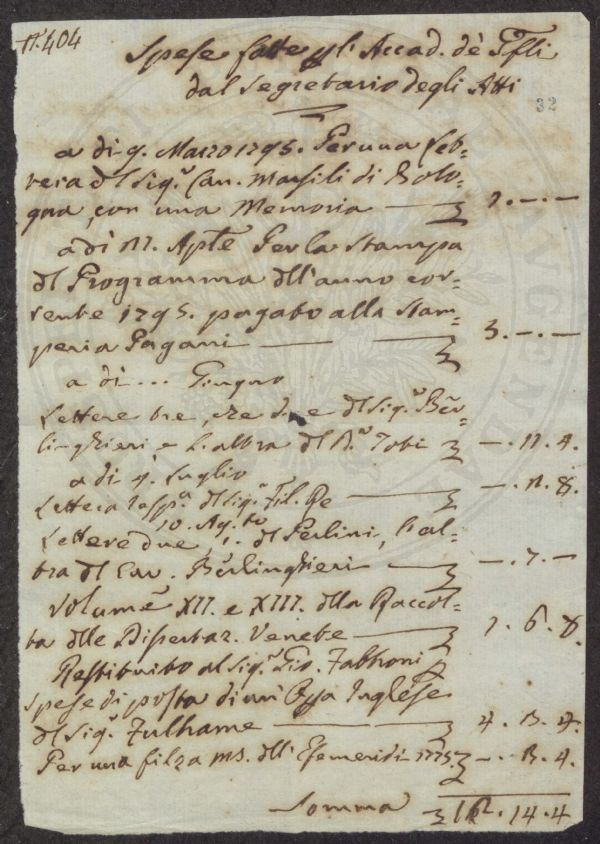 n. 404
Spese fatte pgl' Accad. de' Gfli
dal Segretario degli Atti
32
a di 9. Marzo 1795. Per una Let-
tera dl Sig.r Cav. Marsili di Bolo-
gna, con una Memoria —
adì 11. Aple Per la Stampa
dl Programma dll' anno cor-
rente 1795. pagato alla Stam-
peria Pagani — — 3. —. —
a dì ... Giugno
Lettere tre, che due dl Sig.r Ber-
linghieri e l'altra dl —. 11. 4.
a dì 9. Luglio
Lettera dl Sig.r Fil. Re — —. 11. 8.
10. Ag.to
Lettere due, 1. dl Perlini, l'al-
tra dl Cav. Berlinghieri — —. 7. —
Volume XII. e XIII. dlla Raccol-
ta dlle Dissertaz. Venete — 7. 6. 8.
Restituito al Sig.r Gio. Fabbroni p
spese di posta di un' Opa Inglese
dl Sig.r Fulhame — — 4. 13. 4.
Per una filza ms. dll' Efemeridi 1775. —. 13. 4.
Somma 16. 14. 4